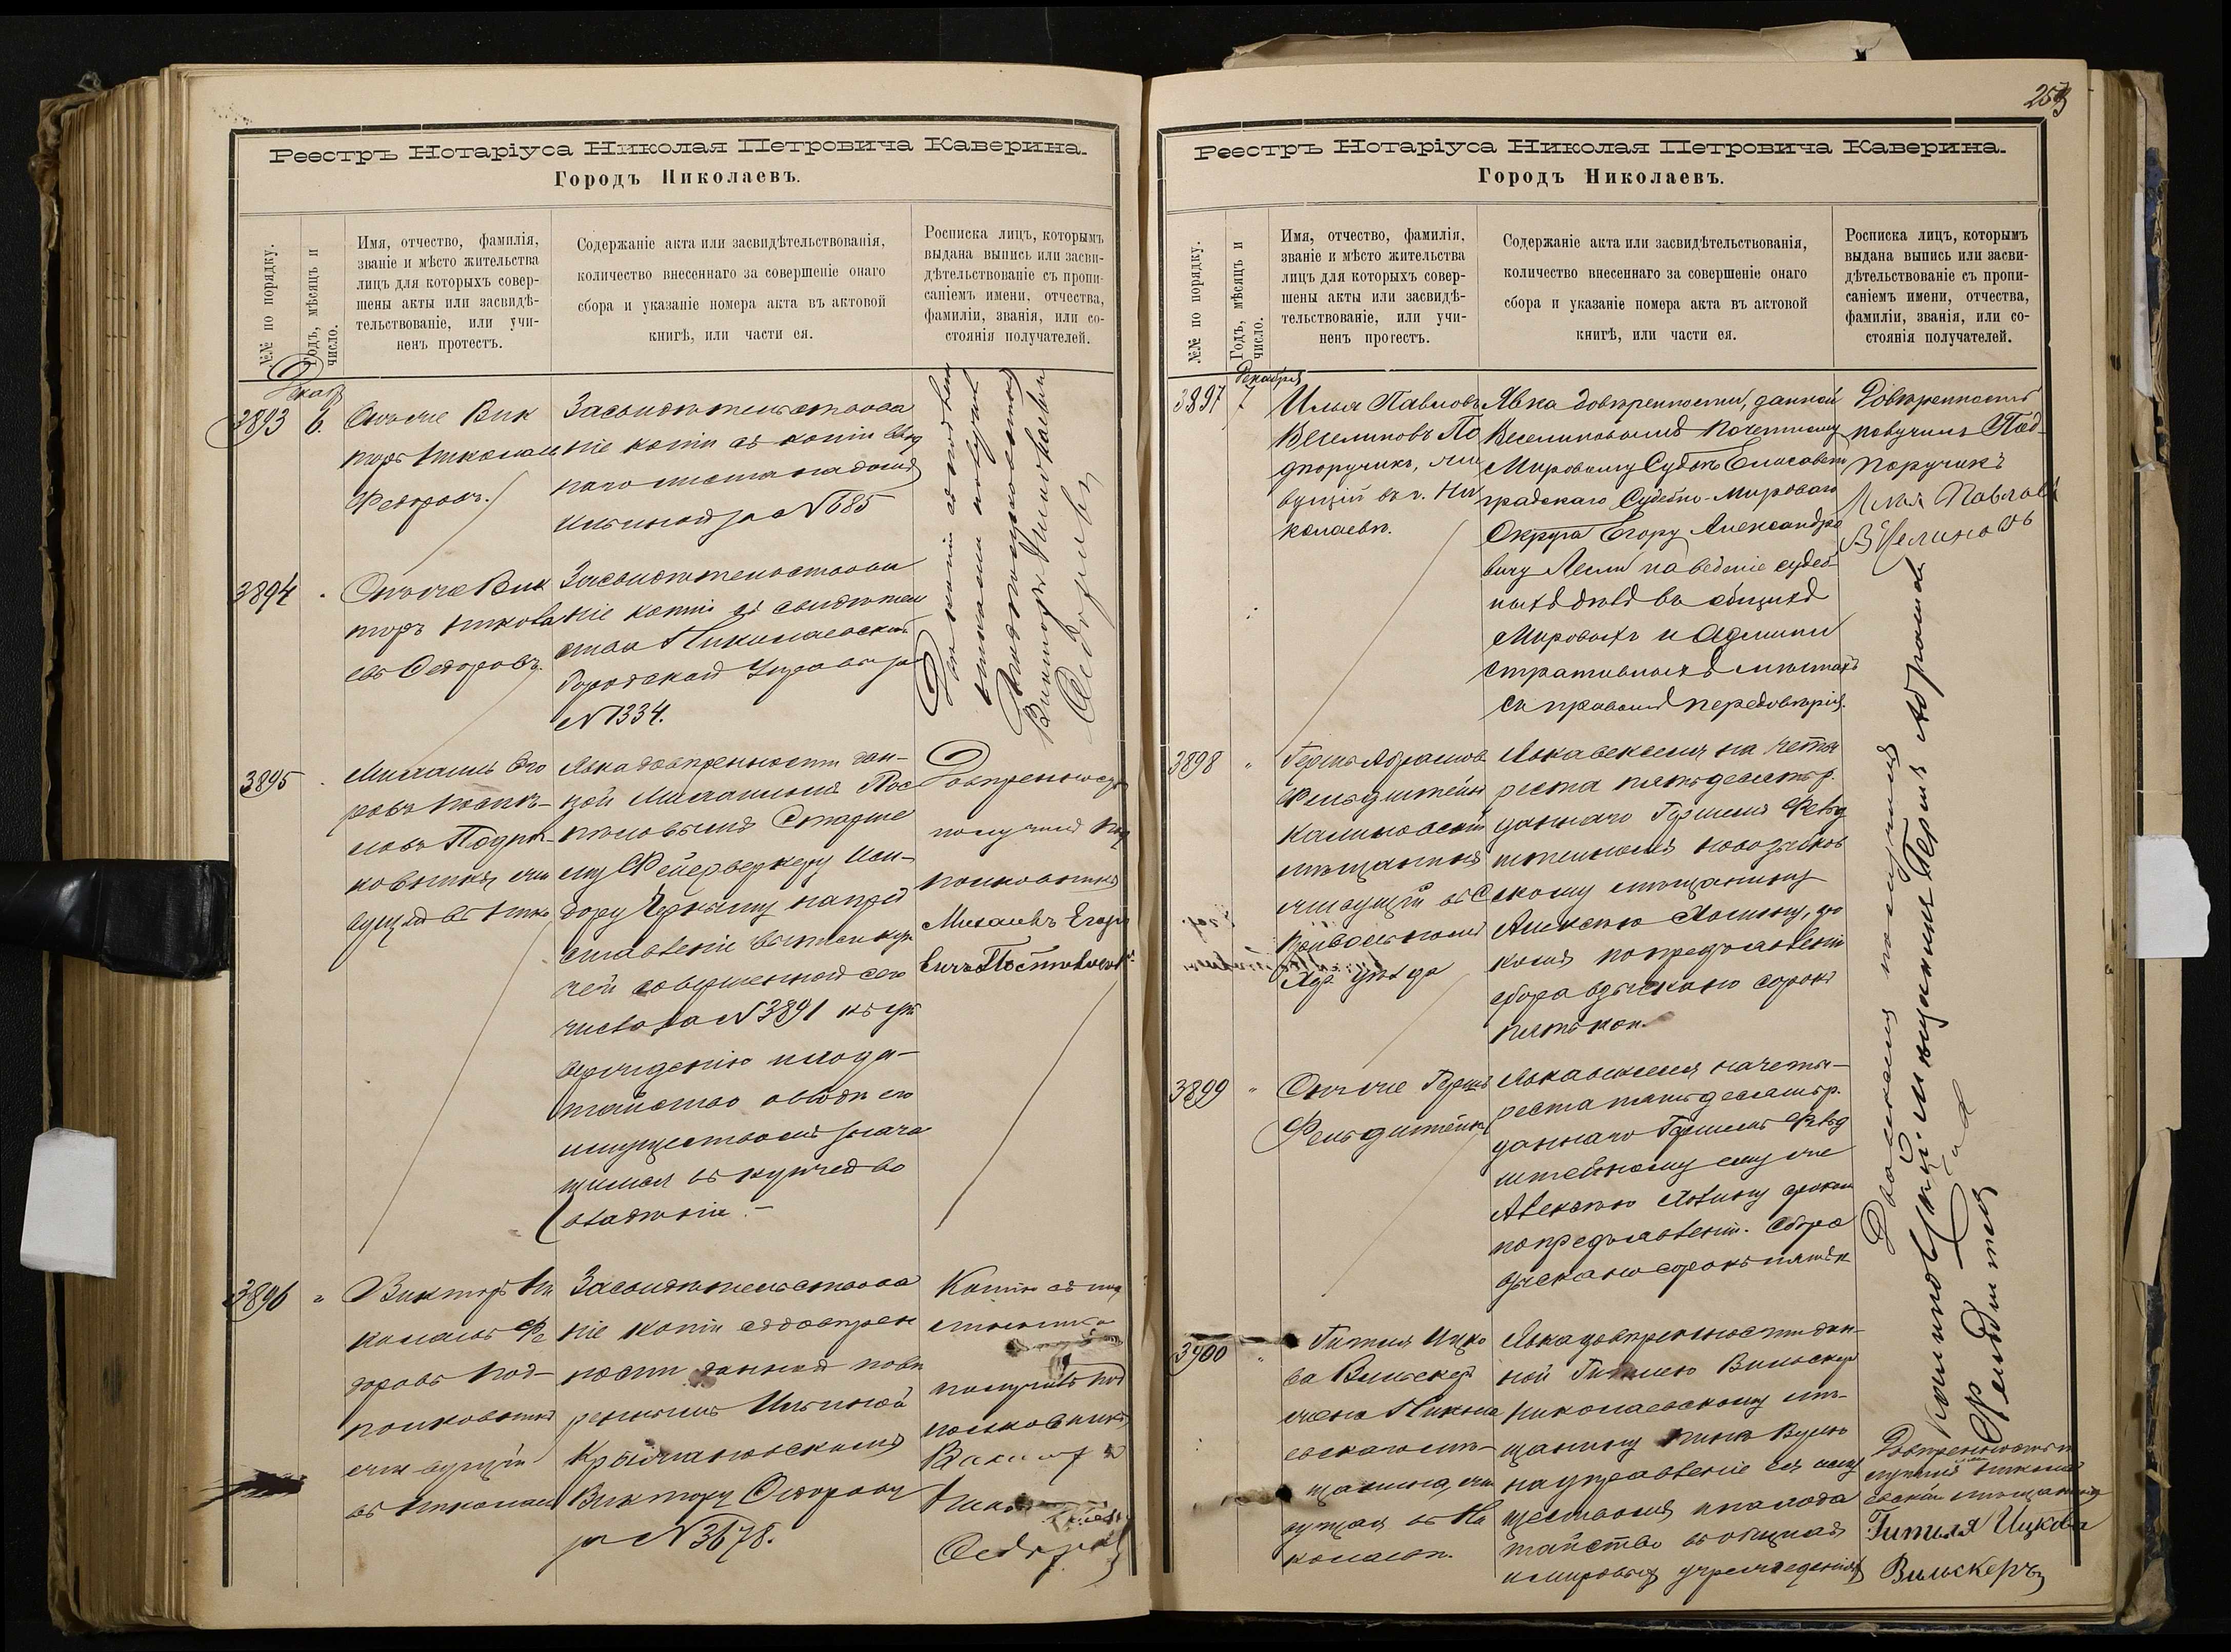 Реестръ Нотаріуса Николая Петровича Каверина.
Городъ Николаевъ.
№№ по порядку.
Годъ, мѣсяцъ и
число.
Имя, отчество, фамилія,
званіе и мѣсто жительства
лицъ для которыхъ совер-
шены акты или засвидѣ-
тельствованіе, или учи-
ненъ протестъ.
Содержаніе акта или засвидѣтельствованія,
количество внесеннаго за совершеніе онаго
сбора и указаніе номера акта въ актовой
книгѣ, или части ея.
Росписка лицъ, которымъ
выдана выпись или засви-
дѣтельствованіе съ пропи-
саніемъ имени, отчества,
фамиліи, званія, или со-
стоянія получателей.
Декабр
3893
6.
Онъ же Вик
торъ Николае
Федоровъ.
Засвидѣтельствова
ніе копіи съ копіи
наго листа на домъ
Ильиной за №685
3894
Онъ же Вик
торъ Никола
евъ Федоровъ.
Засвидѣтельствова
ніе копіи съ свидѣтель
ства Николаевской
Городской Управы за
№1334.
Двѣ копіи съ
получилъ
Подполковникъ
Викторъ Николаевичъ
Федоровъ
3895
Михаилъ Его
ровъ Постни-
ковъ Подпол-
ковникъ жи
вущій въ Нико
Явка довѣренности дан-
ной Михаиломъ Пос
никовымъ Старше
му Фейерверкеру Иси-
дору Черному на пред
ставленіе выписи куп
чей совершенной сего
числа за №3891 къ ут
вержденію и хода-
тайство о вводѣ его
имуществомъ знача
щимся въ купчей во
владѣніе.-
Довѣренность
получилъ Под
полковникъ
Михаилъ Егоро
вичъ Постниковъ
3896
"
Викторъ Ни
колаевъ Фе
доровъ под-
полковникъ
живущій
въ Николаев
Засвидѣтельствова
ніе копіи съ довѣрен
ности данной повѣ
реннымъ Ильиной
Крыжановскимъ
Виктору Федорову
за №3678.
Копію съ под
линникомъ
получилъ под
полковникъ
Викторъ
Никол
Федоровъ
253
Реестръ Нотаріуса Николая Петровича Каверина.
Городъ Николаевъ.
№№ по порядку.
Годъ, мѣсяцъ и
число.
Имя, отчество, фамилія,
званіе и мѣсто жительства
лицъ для которыхъ совер-
шены акты или засвидѣ-
тельствованіе, или учи-
ненъ протестъ.
Содержаніе акта или засвидѣтельствованія,
количество внесеннаго за совершеніе онаго
сбора и указаніе номера акта въ актовой
книгѣ, или части ея.
Росписка лицъ, которымъ
выдана выпись или засви-
дѣтельствованіе съ пропи-
саніемъ имени, отчества,
фамиліи, званія, или со-
стоянія получателей.
Декабря
3897
7
Илья Павловъ
Веселиновъ По
дпоручикъ, жи
вущій въ г. Ни
колаевѣ.
Явка довѣренности, данной
Веселиновымъ Почетному
Мировому Судьѣ Елисавет
градскаго Судебно-Мироваго
Округа Егору Александро
вичу Лесли на веденіе судеб
ныхъ дѣлъ въ общихъ
Мировыхъ и Админи
стративныхъ мѣстахъ
съ правомъ передовѣрія.
Довѣренность
получилъ Под-
поручикъ
Илья Павловъ
Веселиновъ
3898
"
Гершъ Абрамовъ
Фельдштейнъ
Калиновскій
мѣщанинъ
живущій въ С
Привольномъ
Хер уѣзда
Явка векселя на четы
реста пятьдесятъ р.
даннаго Гершемъ Фельд
штейномъ новозыбков
скому мѣщанину
Алексѣю Яловину, сро
комъ по предъявленіи
сбора взыскано сорокъ
пять коп.
3899
"
Онъ же Гершъ
Фельдштейнъ
Явка векселя на четы-
реста пятьдесятъ р.
даннаго Гершемъ Фельд
штейномъ ему же
Алексѣю Яловину срокомъ
по предъявленіи. Сбора
взыскано сорокъ пять к
Два векселя получилъ
Калиновскій мѣщанинъ Гершъ Абрамовъ
Фельдштейнъ
3900
"
Гитля Ицко
ва Вильскеръ
жена Никола
евскаго мѣ-
щанина, жи
вущая въ Ни
колаевѣ.
Явка довѣренности дан-
ной Гитлею Вильскеръ
николаевскому мѣ-
щанину
на управленіе ея иму
ществомъ и на хода
тайство въ общихъ
и мировыхъ учрежденіяхъ
Довѣренность по
лучила Никола
евская мѣщанка
Гитля Ицкова
Вильскеръ